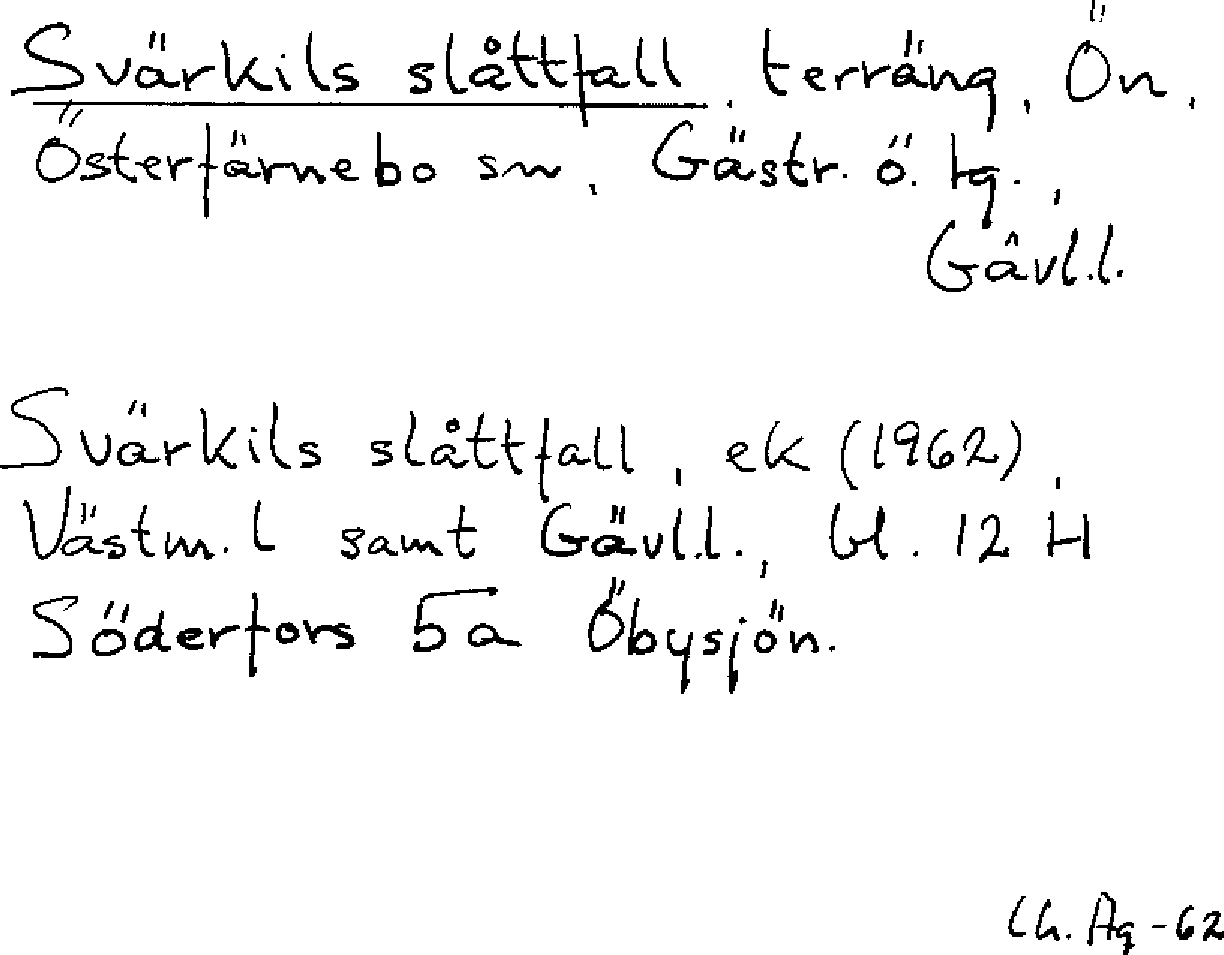 Svärkils slåttfall, terräng, Ön,
Österfärnebo sn, Gästr. ö. tg.,
Gävl.l.
Svärkils slåttfall, ek (1962),
Västm. l samt Gävl.l., bl. 12 H
Söderfors 5a Öbysjön.
Ch. Ag -62